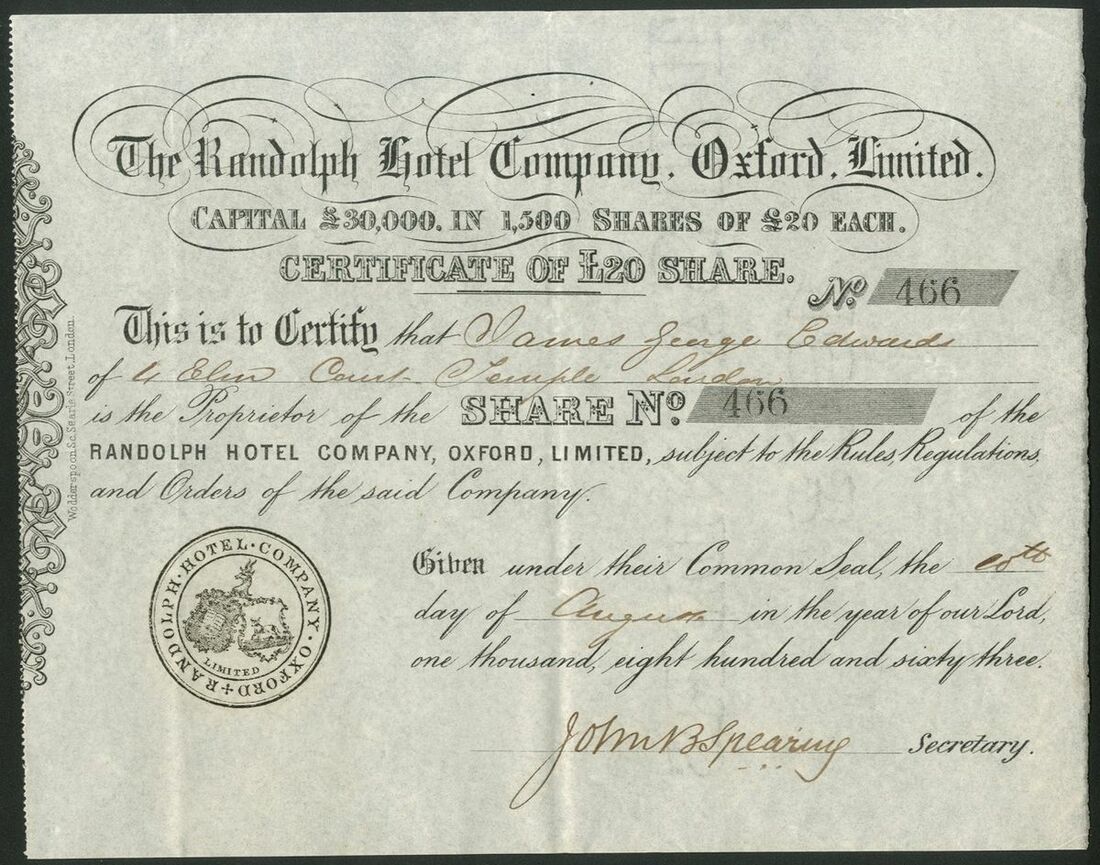 The Randolph Hotel Company, Oxford, Limited.
CAPITAL £30,000. IN 1,500 SHARES OF £20 EACH.
CERTIFICATE OF £20 SHARE.
No. 466
This is to Certify that James George Edwards
of 4 Elm Court Temple London
is the Proprietor of the SHARE No. 466 of the
RANDOLPH HOTEL COMPANY, OXFORD, LIMITED, subject to the Rules, Regulations,
and Orders of the said Company.
Wodderspoon Sc. Searle Street, London.
RANDOLPH · HOTEL · COMPANY · OXFORD
LIMITED
Given under their Common Seal, the
day of August in the year of our Lord,
one thousand, eight hundred and sixty three.
John B Spearing Secretary.